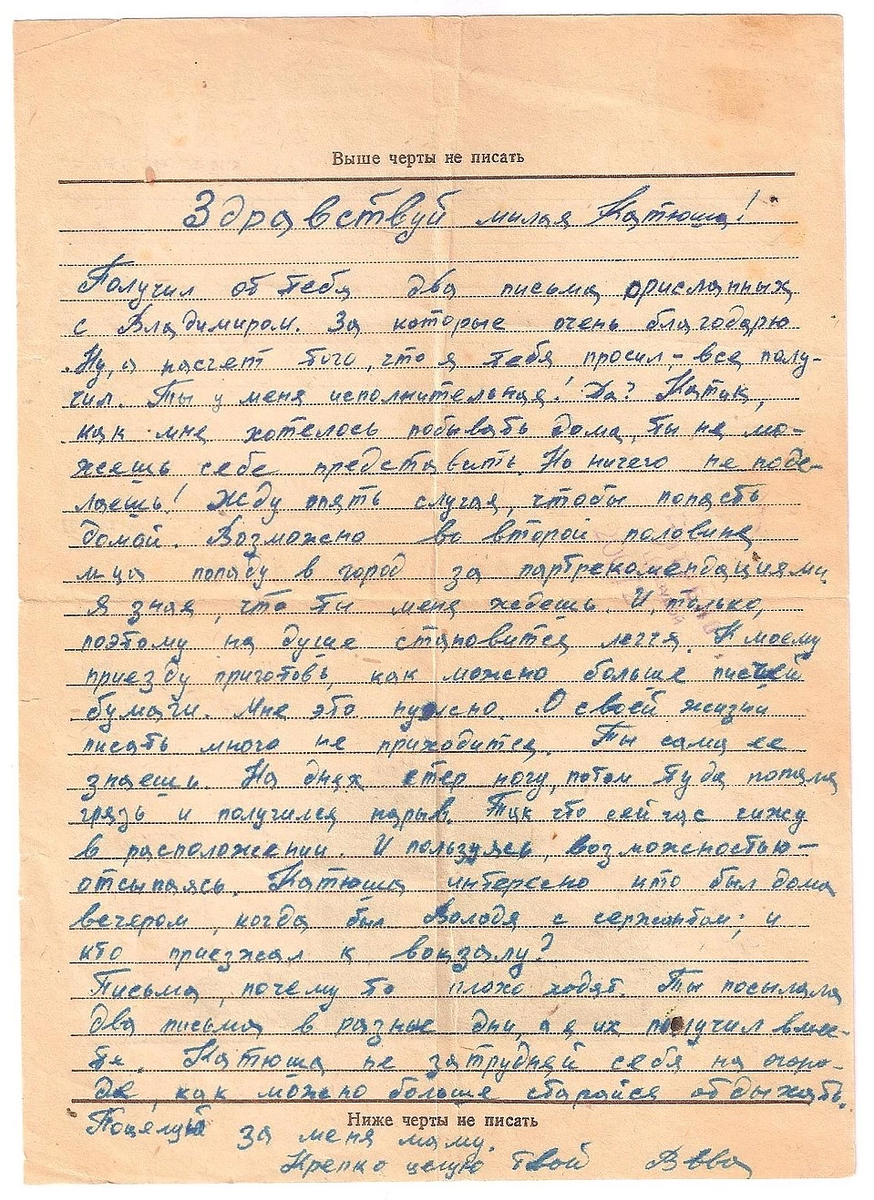 Выше черты не писать
Здравствуй милая Катюша!
Получил от тебя два письма присланных
с Владимиром. За которые очень благодарю
Ну, а насчет того, что я тебя просил, – все полу-
чил. Ты у меня исполнительная! Да? Катик,
как мне хотелось побывать дома, ты не мо-
жешь себе представить. Но ничего не поде-
лаешь! Жду опять случая, чтобы попасть
домой. Возможно во второй половине
м-ца попаду в город за партрекомендациями
Я знаю, что ты меня ждешь. И, только,
поэтому на душе становится легче. К моему
приезду приготовь, как можно больше писчей
бумаги. Мне это нужно. О своей жизни
писать много не приходится. Ты сама ее
знаешь. На днях стер ногу, потом туда попала
грязь и получился нарыв. Так что сейчас сижу
в расположении. И пользуясь, возможностью –
отсыпаясь. Катюша интересно кто был дома
вечером, когда был Володя с сержантом; и
кто приезжал к вокзалу?
Письма, почему то плохо ходят. Ты посылала
два письма в разные дни, а я их получил вме-
сте. Катюша не затрудняй себя на огоро-
де, как можно больше старайся отдыхать.
Ниже черты не писать
Поцелуй за меня маму.
Крепко целую твой Вова